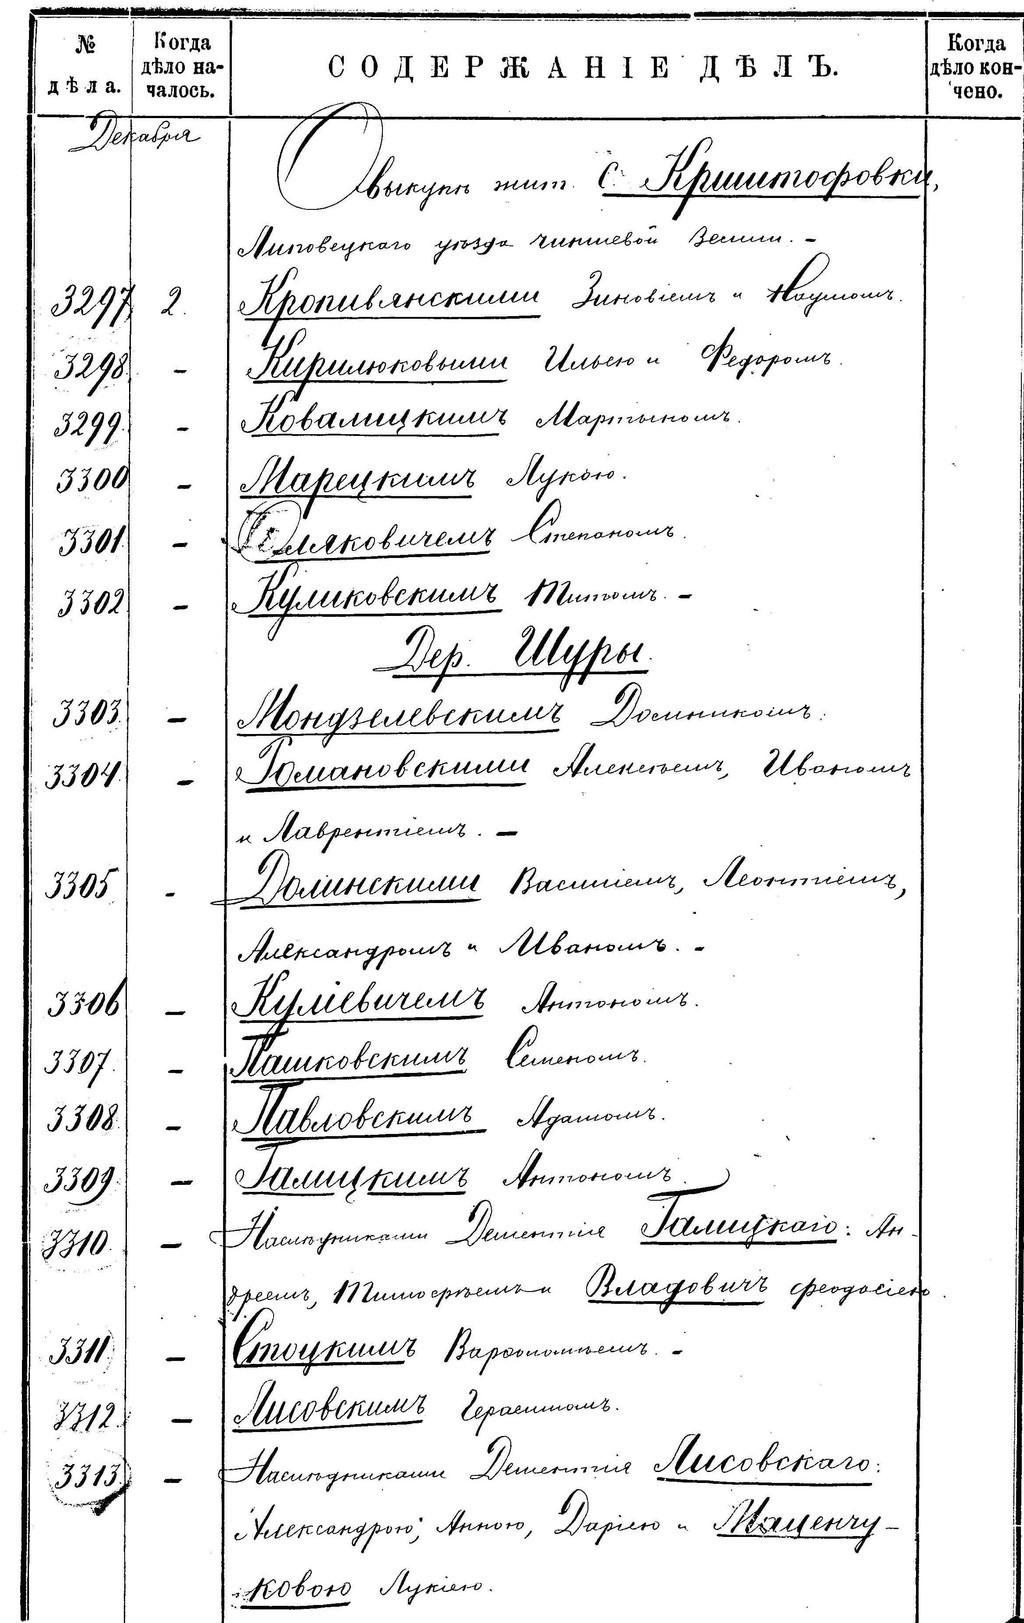 № дѣла.
Когда дѣло началось.
СОДЕРЖАНІЕ ДѢЛЪ.
Когда дѣло кончено.
Декабря
О выкупѣ жит. с. Криштофовки,
Липовецкаго уѣзда чиншевой земли. –
3297 2. Кропивянскими Зиновіемъ и Наумомъ.
3298 – Кирилюковыми Ильею и Федоромъ.
3299. – Ковалицкимъ Мартыномъ.
3300 – Марецкимъ Лукою.
3301. – Степаномъ.
3302 – Куликовскимъ Титомъ. –
Дер. Шуры.
3303. – Мондзелевскимъ Домникомъ.
3304. – Романовскими Алексѣемъ, Иваномъ
и Лаврентіемъ. –
3305 – Долинскими Василіемъ, Леонтіемъ,
Александромъ и Иваномъ. –
3306 – Куліевичемъ Антономъ.
3307. – Пашковскимъ Семеномъ.
3308. – Павловскимъ Адамомъ.
3309. – Галицкимъ Антономъ.
3310. – Наслѣдниками Дементія Галицкаго: Ан-
дреемъ, Тимофѣемъ и Владовичъ Феодосіею.
3311. – Стоцкимъ Варфоломѣемъ. –
3312. – Лисовскимъ Герасимомъ.
3313. – Наслѣдниками Дементія Лисовскаго:
Александрою, Анною, Даріею и Маценчу-
ковою Лукіею.